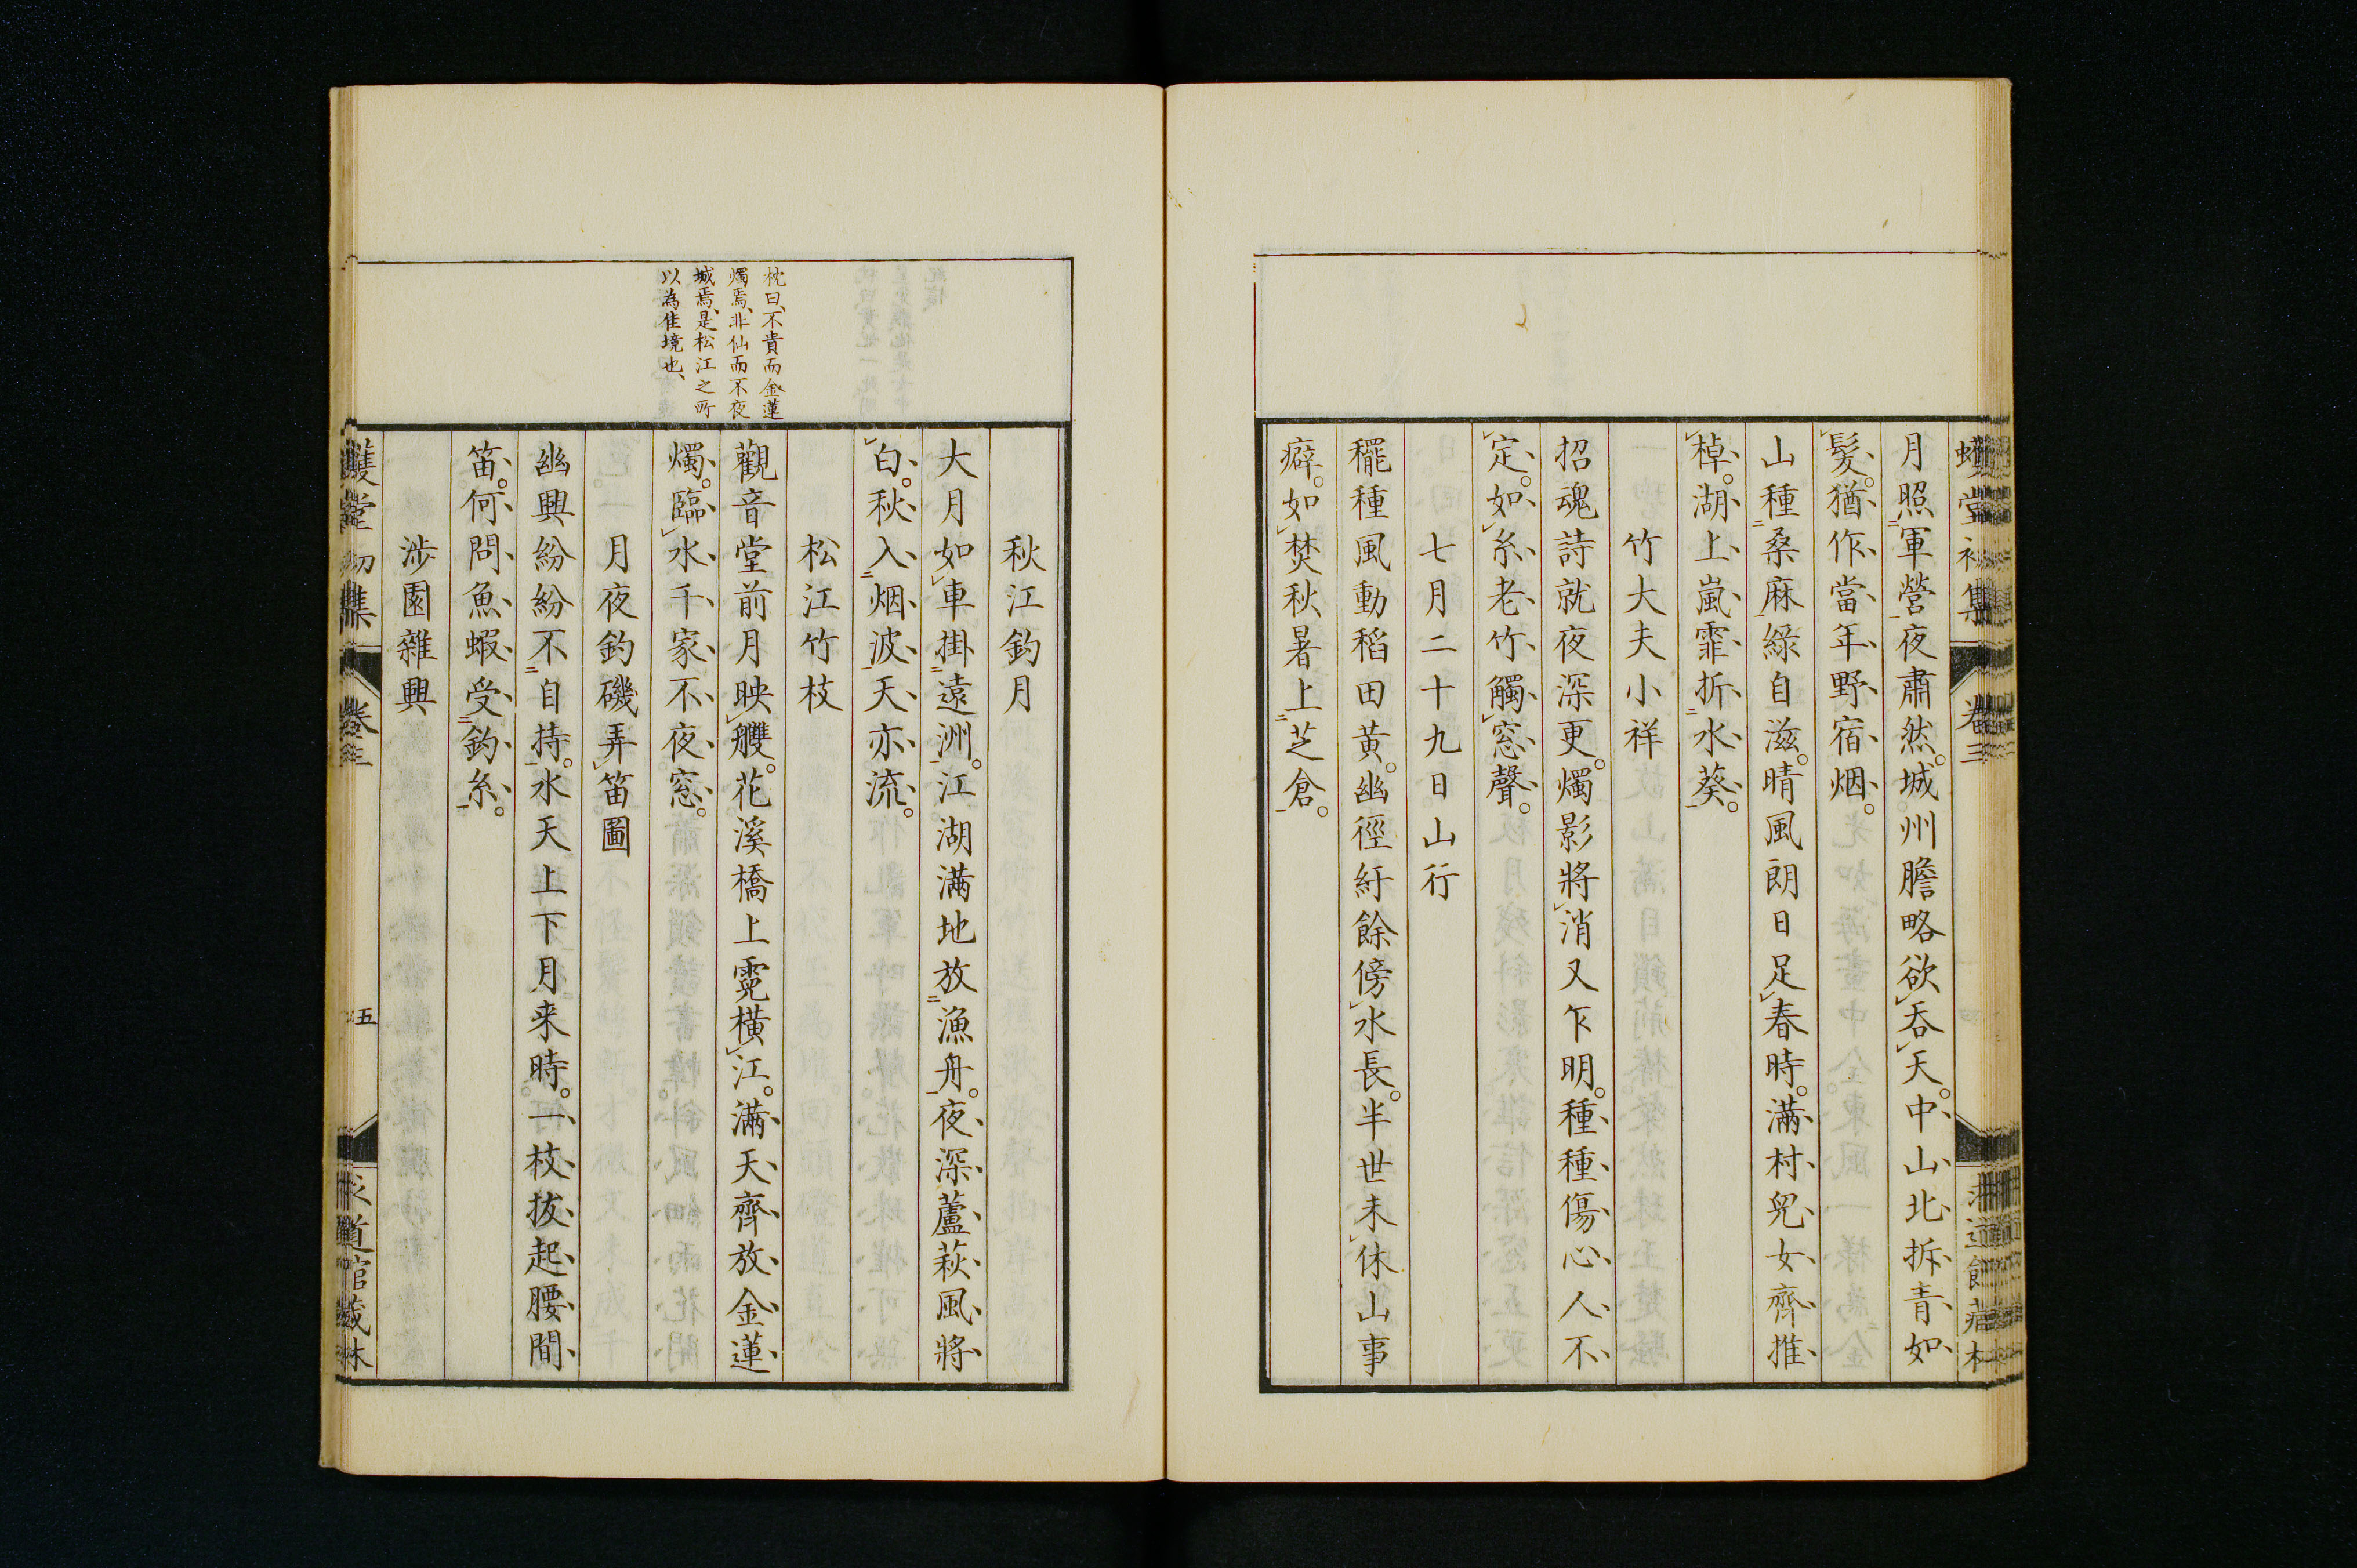 月照軍營夜肅然。城州膽略欲吞天。中山北拆青如
髮。猶作當年野宿烟。
山種桑麻綠自滋。晴風朗日足春時。滿村兒女齊推
棹。湖上嵐霏折水葵。
竹大夫小祥
招魂詩就夜深更。燭影將消又乍明。種種傷心人不
定。如糸老竹觸窓聲。
七月二十九日山行
䆉種風動稻田黃。幽徑紆餘傍水長。半世未休山事
癖。如焚秋暑上芝倉。
秋江釣月
大月如車掛遠洲。江湖滿地放漁舟。夜深蘆萩風將
白。秋入烟波天亦流。
松江竹枝
枕曰、不貴而金蓮
燭焉、非仙而不夜
城焉、是松江之所
以為佳境也、
觀音堂前月映艭。花溪橋上霓橫江。滿天齊放金蓮
燭。臨水千家不夜窓。
月夜釣磯弄笛圖
幽興紛紛不自持。水天上下月来時。一枝拔起腰間
笛。何問魚蝦受釣糸。
涉園雜興
卷三
五